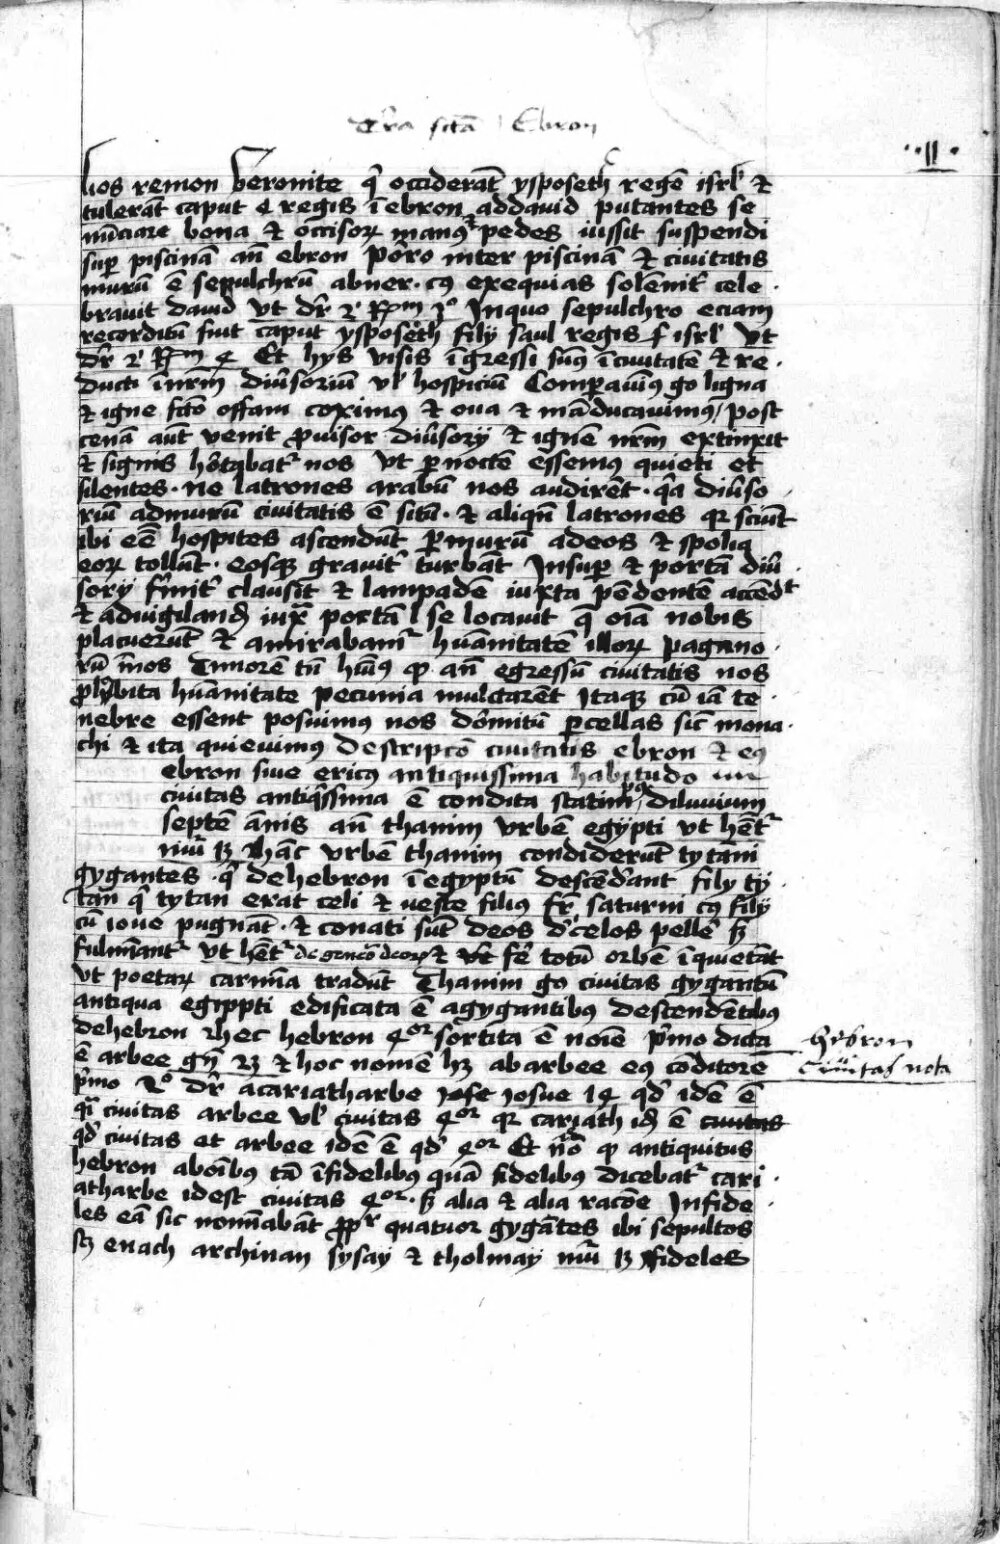 Tr̄a sctā Ebron
·II·
lios remon beronite q̇ occiderāt ysposeth regē isrl̄ ⁊
tulerāt caput eꝰ regis ī ebron addavid putantes se
nūciare bona ⁊ occisoꝝ manꝰ ⁊ pedes iussit suspendi
suꝑ piscinā añ ebron Porro inter piscinā ⁊ civitatis
murū ē sepulchrū abner · cꝰ exequias solēnit̄ cele
bravit david vt dr̄ 2 Rm̄ 3º Inquo sepulchro eciam
reconditū fuit caput ysposeth filÿ saul regis isrl̄ vt
dr̄ 2 Rm̄ 4 Et hÿs visis īgressi sumꝰ ī civitatē ⁊ re
ducti ī nr̄m diūsoriū vl̓ hospiciū Comꝑavimꝰ g̊ ligna
⁊ igne fc̄to offam coximꝰ ⁊ ova ⁊ māducavimꝰ / post
cenā aūt venit ꝓvisor diūsorÿ ⁊ ignē nr̄m extinxit
⁊ signis hortabat̄ nos vt ꝑ noctē essemꝰ quieti et
silentes · ne latrones arabū nos audirēt · q̇a diūso
riū admurū civitatis ē sitū · ⁊ aliqñ latrones qꝛ sciūt
ibi eē hospites ascendūt ꝑ murū adeos ⁊ spolia
eoꝝ tollūt · eosqꝫ gravit̄ turbāt Insuꝑ ⁊ portā diū
sorÿ firmit̄ clausit ⁊ lampadē iuxta pēdentē accēdit
⁊ advigilandū iuxᵃ portā se locavit q̄ oīa nobis
placuerūt ⁊ amirabamr̄ hūanitatē illoꝝ pagano
rū ī nos Timorē tn̄ huimꝰ ꝙ añ egressū civitatis nos
ꝓhibita hūanitate pecunia mulctarēt Itaqꝫ cū iā te
nebre essent posuimꝰ nos dormitū ꝑ cellas sic mona
chi ⁊ ita quievimꝰ Descripcō civitatis ebron ⁊ eꝰ
ebron sive ericꝰ antiquissima habitudo
civitas antiqissima ē condita statim pꝰ diluvium
septē ānis añ thanim vrbē egypti vt hēt̄
nūi 13 Hāc vrbē thanim condiderūt tytani
gygantes · q̇ dehebron ī egyptū descēderant filÿ ty
tan q̇ tytan erat celi ⁊ veste filius fr̄ saturni cꝰ filÿ
cū iove pugnāt · ⁊ conati sūt deos d̓ celos pellē sꝫ
fulmīantr̄ vt hēt̄ de gencō deoꝝ ⁊ fer̄ totū orbē īquietāt
vt poetaꝝ carmīa tradūt Thanim g̊ civitas gygantū
antiqua egippti edificata ē agygantibus descendētibus
dehebron Hec hebron 4or sortita ē noīe pͥmo dicta
ē arbee gn̄ 23 ⁊ hoc nomē hꝫ abarbee eꝰ cōditorē
pͥmo 2º dr̄ acariatharbe Josue 14 qđ idē ē
qͣi civitas arbee vl̓ civitas 4or qꝛ cariath id̄ ē civitas
qđ civitas et arbee idē ē qđ 4or Et rō ꝙ antiquitus
hebron aboībꝰ tā īfidelibus quā fidelibus dicebat̄ cari
atharbe idest civitas 4or · sꝫ alia ⁊ alia racōe Infide
les eā sic nomīabāt ꝓptr̄ quatuor gygātes ibi sepultos
sꝫ enach archiman sysay ⁊ tholmay nūi 13 fideles
Hebron
Civitas nota